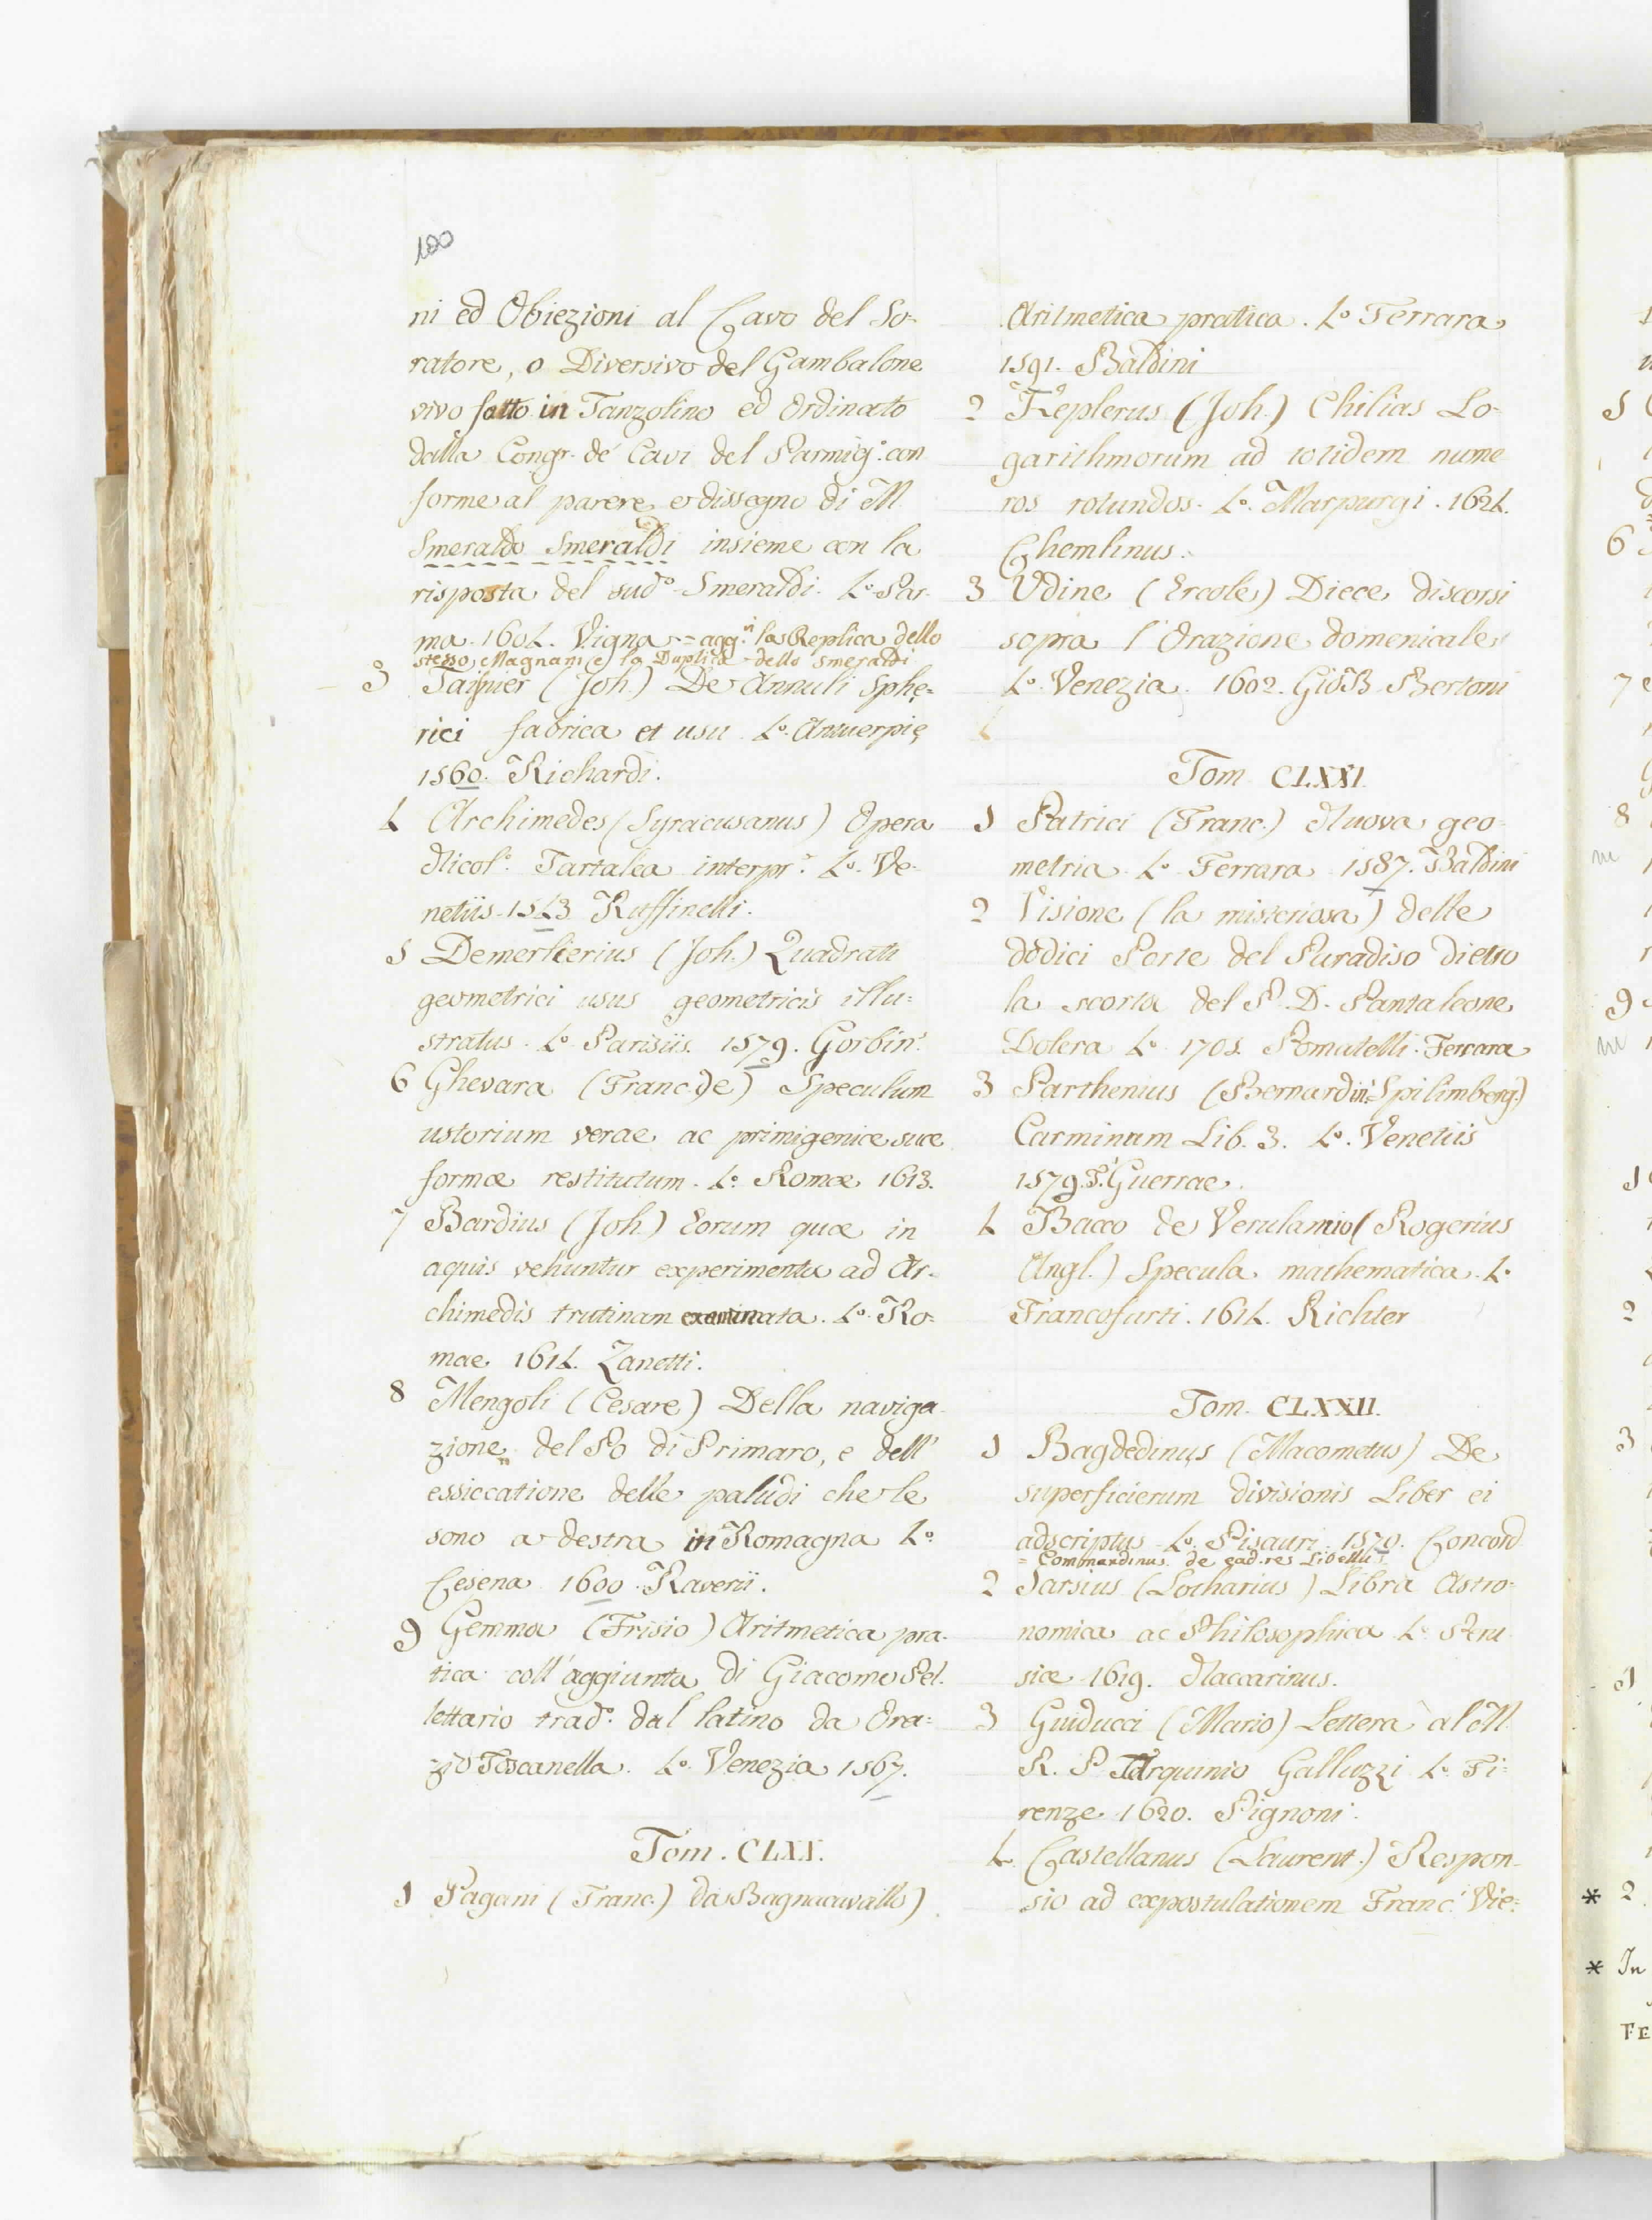 100
ni ed Obiezioni al Cavo del So-
ratore, o Diversivo del Gambalone
vivo fatto in Tanzolino ed Ordinato
dalla Congr. de' Cavi del Parmig.º con
forme al parere e dissegno di M.
Smeraldo Smeraldi insieme con la
risposta del sud.º Smeraldi. 4.º Par-
ma. 1604. Vigna = agg. la Replica dello
stesso Magnani e la Duplica dello Smeraldi
3 Taisnier (Joh.) De Annuli Sphę-
rici fabrica et usu 4.º Antuerpię
1560. Richardi.
4 Archimedes (Syracusanus) Opera
Nicol.º Tartalea interpr. 4.º Ve-
netiis 1543 Ruffinelli.
5 Demerlierius (Joh.) Quadrati
geometrici usus geometricis illu=
stratus. 4.º Parisiis. 1579. Gorbin.
6 Ghevara (Franc. de) Speculum
ustorium verae ac primigenice suce
formæ restitutum. 4.º Romæ 1613.
7 Bardius (Joh.) Eorum quæ in
aquis vehuntur experimenta ad Ar-
chimedis trutinam examinata. 4.º Ro=
mae 1614. Zanetti.
8 Mengoli (Cesare) Della naviga-
zione del Po di Primaro, e dell'
essiccatione delle paludi che le
sono a destra in Romagna 4.º
Cesena 1600. Raverii.
9 Gemma (Frisio) Aritmetica pra-
tica coll'aggiunta di Giacomo Pel-
lettario trad.º dal latino da Ora=
zio Toscanella. 4.º Venezia 1567.
Tom. CLXX.
1 Pagani (Franc.) da Bagnacavallo)
Aritmetica pratica. 4.º Ferrara
1591. Baldini
2 Keplerus (Joh.) Chilias Lo-
garithmorum ad totidem nume
ros rotundos. 4.º Marpurgi. 1624.
Chemlinus.
3 Udine (Ercole) Diece discorsi
sopra l'Orazione domenicale
4.º Venezia. 1602. Gio B. Bertoni
Tom CLXXI.
1 Patrici (Franc.) Nuova geo-
metria 4.º Ferrara 1587. Baldini
2 Visione (la misteriosa) delle
dodici Porte del Paradiso dietro
la scorta del P. D. Pantaleone
Dolera 4.º 1705. Pomatelli. Ferrara
3 Parthenius (Bernardin. Spilimberg.)
Carminum Lib. 3. 4.º Venetiis
1579. Guerrae.
4 Bacco de Verulamio (Rogerius
Angl.) Specula mathematica. 4.º
Francofurti. 1614. Richter
Tom. CLXXII.
1 Bagdedinus (Macometus) De
superficierum divisionis Liber ei
adscriptus 4.º Pisauri 1570. Concord
= Commandinus de ead. re Libellus
2 Sarsius (Lotharius) Libra Astro-
nomica ac Philosophica 4.º Peru
siæ 1619. Naccarinus.
3 Guiducci (Mario) Lettera al M.
R. P. Tarquinio Galluzzi 4.º Fi=
renze 1620. Pignoni.
4. Castellanus (Laurent.) Respon-
sio ad expostulationem Franc. Vie=